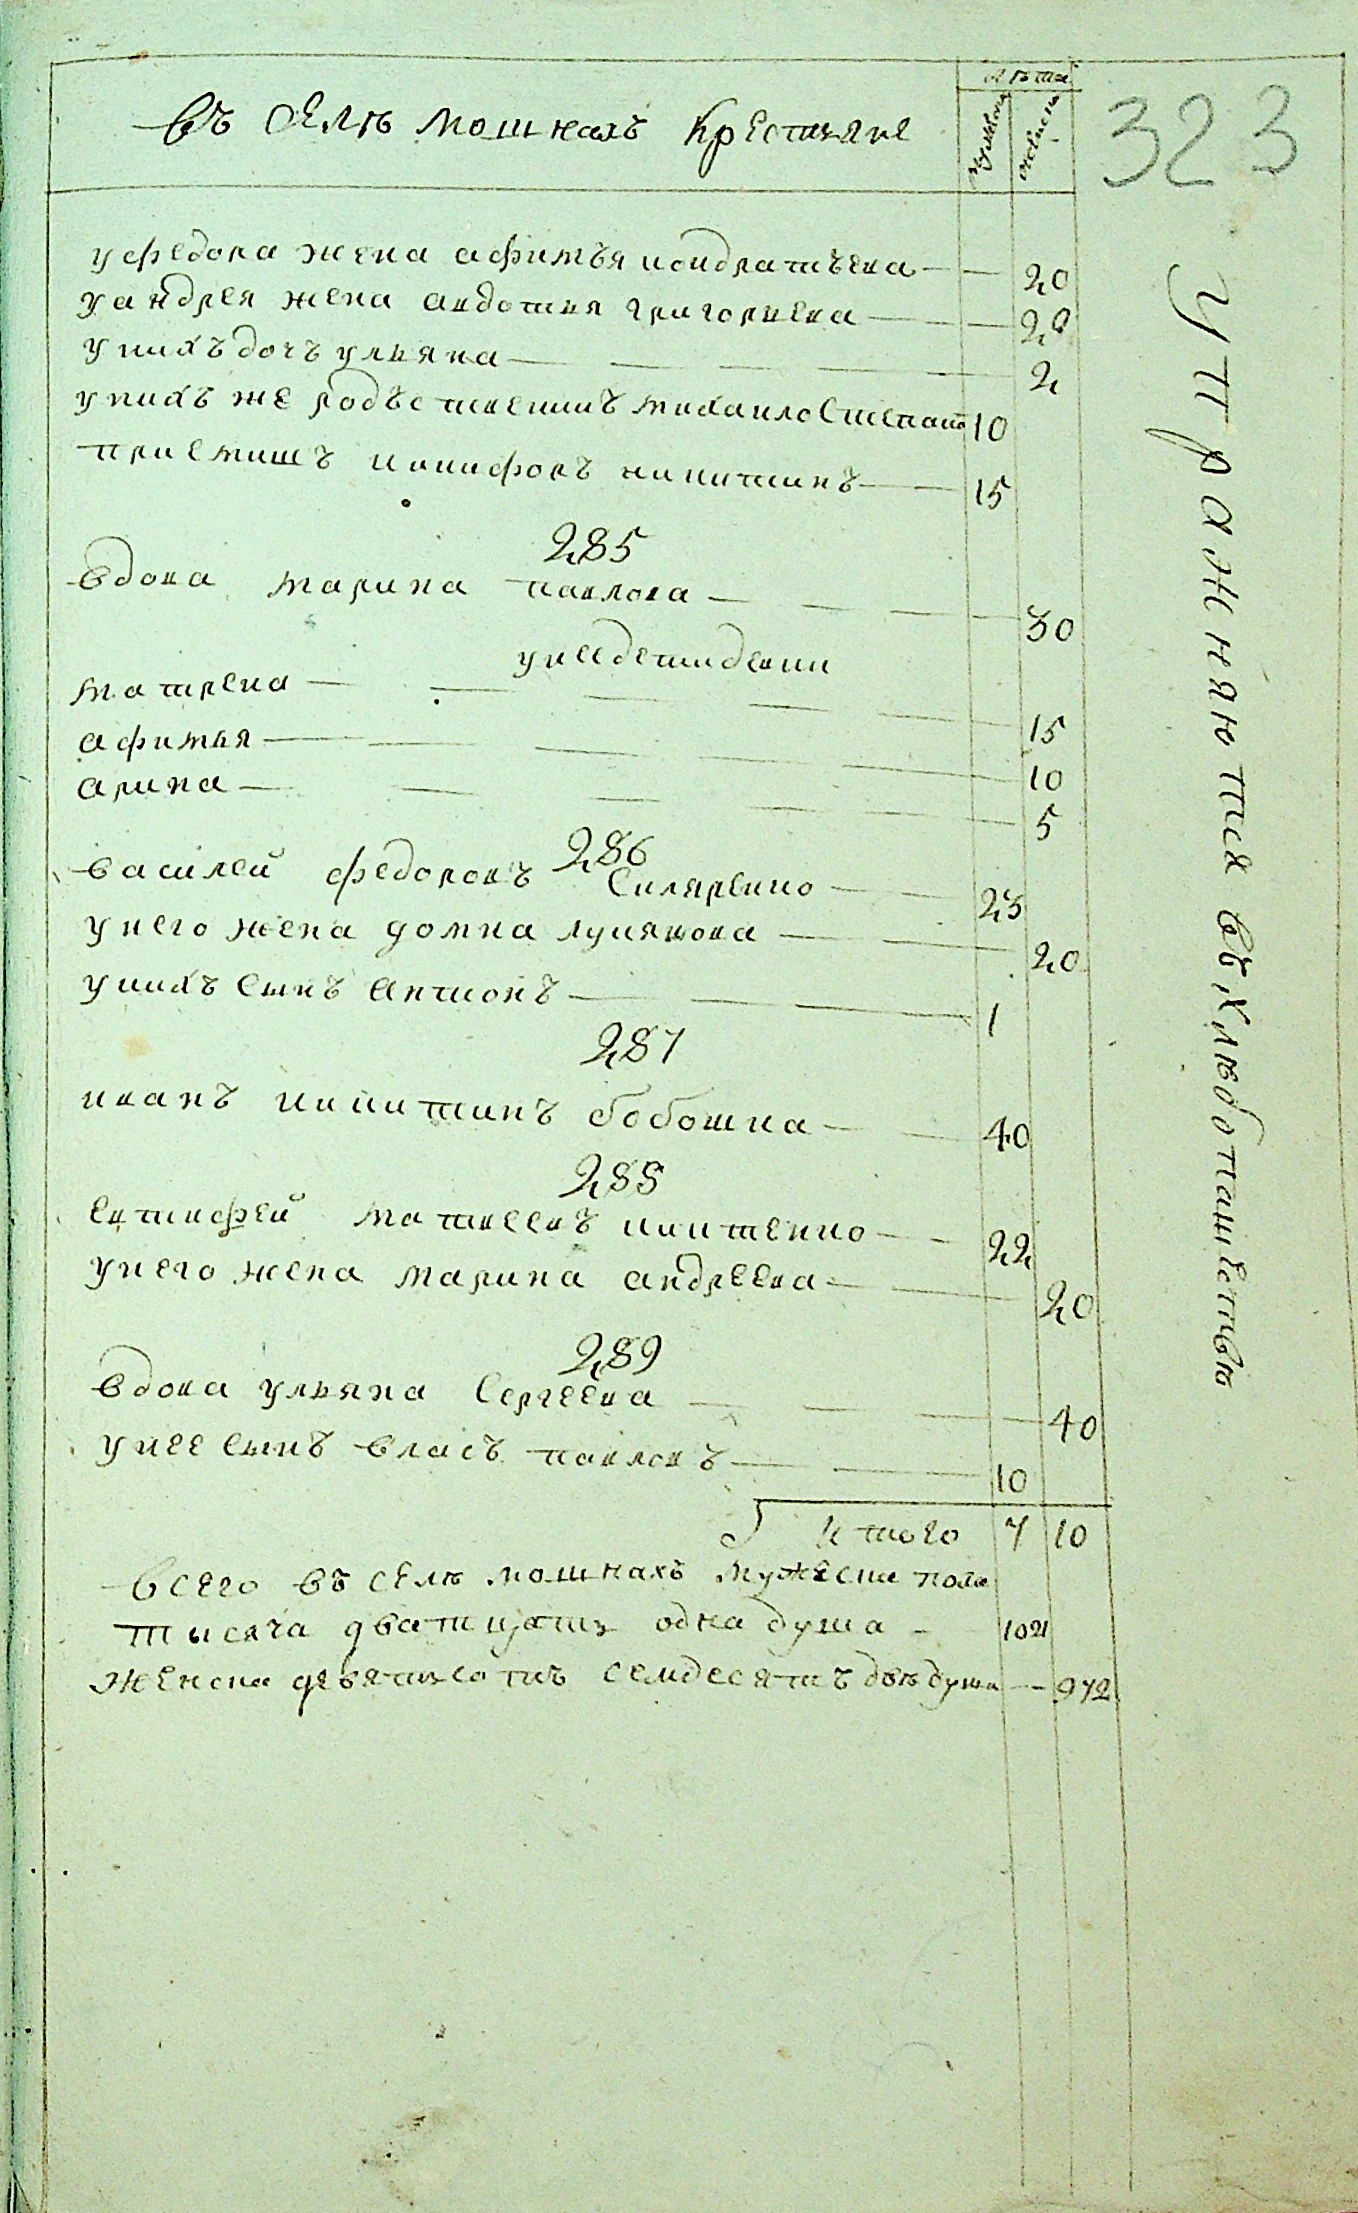 лѣта
въ селѣ мошнахъ крестьяне
мужеска
женска
323
у федора жена афимъя кондратъева 20
у андрея жена авдотья григорьева 20
у нихъ дочъ ульяна 2
у нихъ же родъственникъ михаило степано 10
приемишъ никифоръ никитинъ 15
285
вдова марина павлова 30
у нее дети девки
матрена 15
афимья 10
арина 5
286
василей федоровъ скляренко 23
у него жена домна лукянова 20
у нихъ сынъ антионъ 1
287
иванъ никитинъ бобошка 40
288
евтифей матвеевъ никтенко 22
у него жена марина андреева 20
289
вдова ульяна сергеева 40
у нее сынъ власъ павловъ 10
итого 7 10
всего въ селѣ мошнахъ мужеска пола
тысяча дватцать одна душа 1021
женска девятьсотъ семдесятъ двѣ душы 972
упражняются въ хлѣбопашествѣ